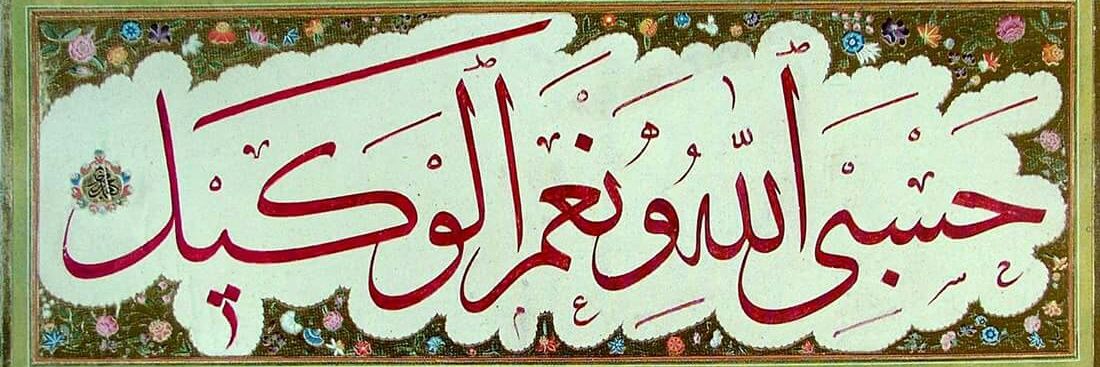 حَسْبِىَ اللّٰهُ وَنِعْمَ الْوَكِيلُ